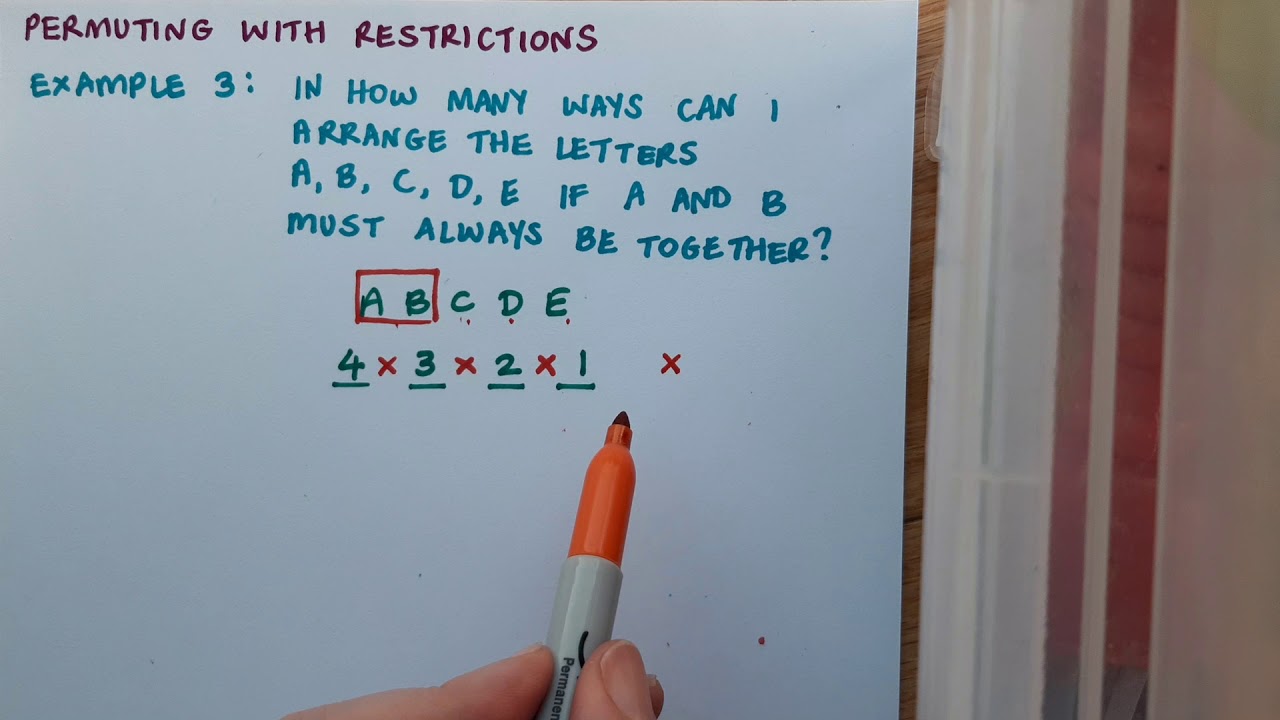 PERMUTING WITH RESTRICTIONS
EXAMPLE 3: IN HOW MANY WAYS CAN I
ARRANGE THE LETTERS
A, B, C, D, E IF A AND B
MUST ALWAYS BE TOGETHER?
A B C D E
4 × 3 × 2 × 1 ×
Permanen